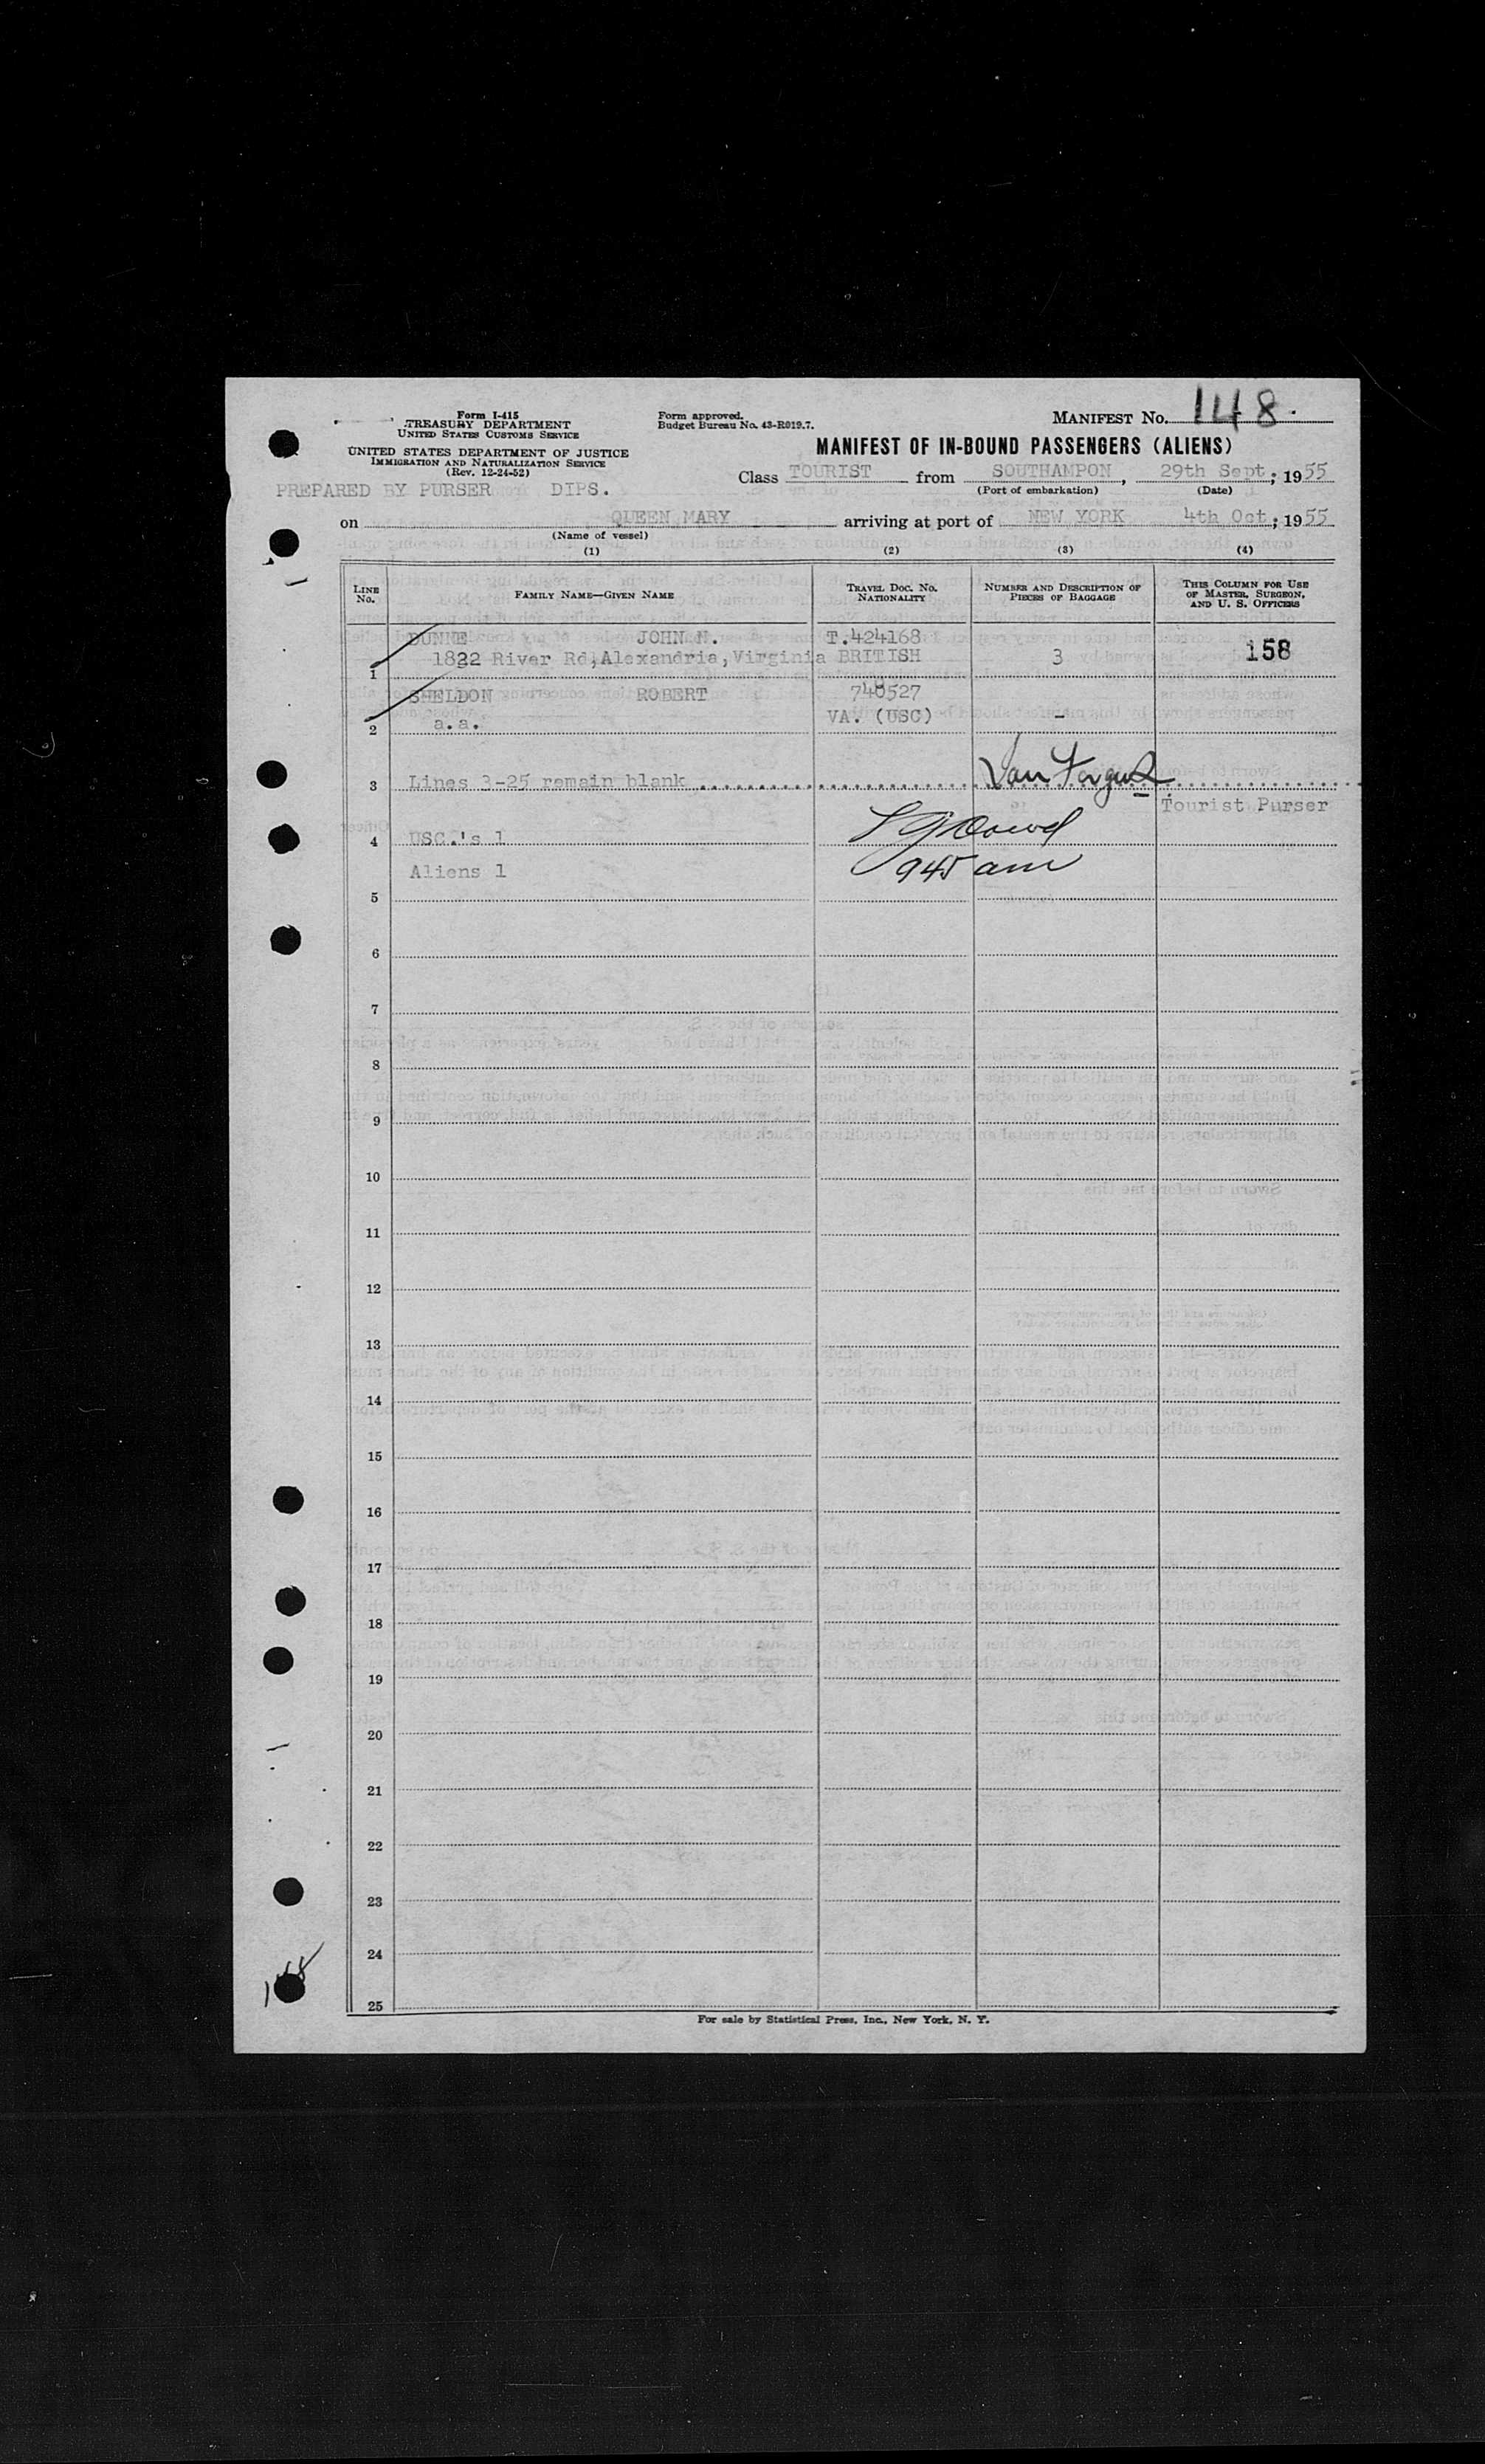 Form I-415
TREASURY DEPARTMENT
UNITED STATES CUSTOMS SERVICE
UNITED STATES DEPARTMENT OF JUSTICE
IMMIGRATION AND NATURALIZATION SERVICE
(Rev. 12-24-52)
PREPARED BY PURSER DIPS.
Form approved.
Budget Bureau No. 43-R019.7.
MANIFEST No. 148
MANIFEST OF IN-BOUND PASSENGERS (ALIENS)
Class TOURIST from SOUTHAMPON, 29th Sept; 1955
(Port of embarkation) (Date)
on QUEEN MARY arriving at port of NEW YORK 4th Oct; 1955
(Name of vessel)
(1) (2) (3) (4)
LINE No. FAMILY NAME—GIVEN NAME TRAVEL DOC. NO. NATIONALITY NUMBER AND DESCRIPTION OF PIECES OF BAGGAGE THIS COLUMN FOR USE OF MASTER, SURGEON, AND U. S. OFFICERS
DUNNE JOHN N. T.424168
1 1822 River Rd, Alexandria, Virginia BRITISH 3 158
SHELDON ROBERT 740527
2 a.a. VA. (USC) -
3 Lines 3-25 remain blank
Tourist Purser
4 USC.'s 1
Aliens 1 945 am
5
6
7
8
9
10
11
12
13
14
15
16
17
18
19
20
21
22
23
24
25
For sale by Statistical Press, Inc., New York, N. Y.